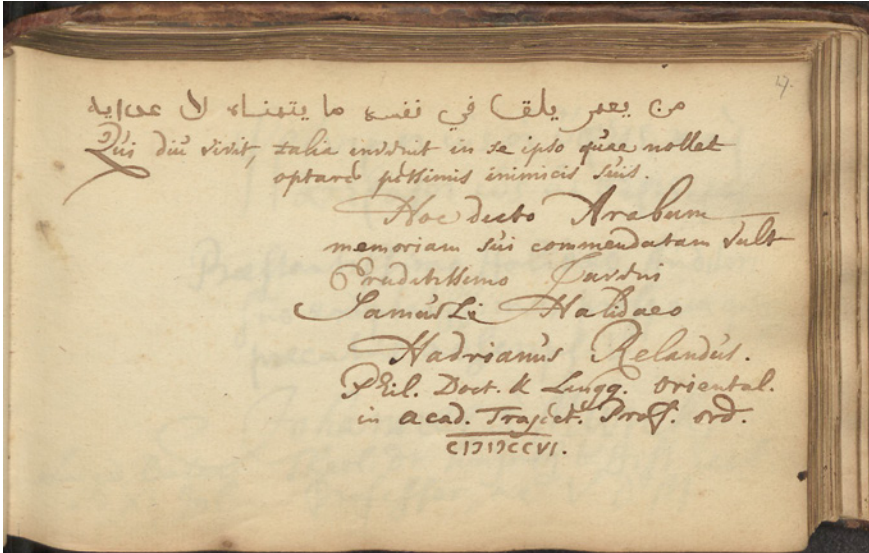 4.
من يعمر يلقا في نفسه ما يتمناه لا عدايه
Qui diu vivit, talia invenit in se ipso quae nollet
optare pessimis inimicis suis.
Hoc dicto Arabum
memoriam sui commendatam vult
Eruditissimo Juveni
Samueli Halidaeo
Hadrianus Relandus.
Phil. Doct. & Lingg. Oriental.
in acad. Traject. Prof. ord.
CIƆIƆCCVI.